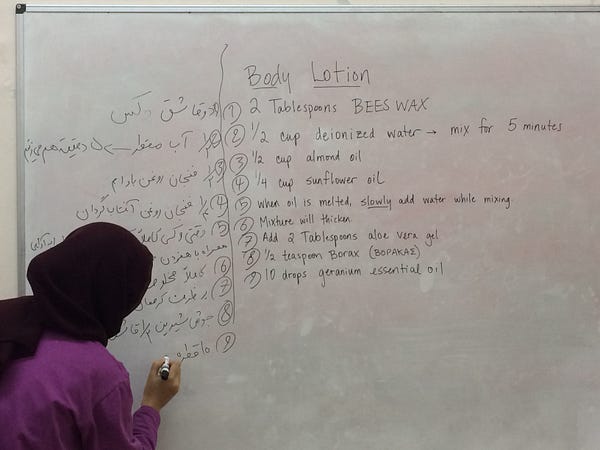 Body Lotion
① 2 Tablespoons BEES WAX
② 1/2 cup deionized water → mix for 5 minutes
③ 1/2 cup almond oil
④ 1/4 cup sunflower oil
⑤ When oil is melted, slowly add water while mixing.
⑥ Mixture will thicken.
⑦ Add 2 Tablespoons aloe vera gel
⑧ 1/2 teaspoon Borax (ΒΟΡΑΚΑΣ)
⑨ 10 drops geranium essential oil
① دو قاشق وکس
② آب مقطر ← ۵ دقیقه هم
③ ۱/۲ فنجان روغن بادام
④ ۱/۴ فنجان روغن آفتاب گردان
⑤ وقتی وکس کاملاً
همراه با همزدن
⑥ کاملاً
⑦
⑧ جوش شیرین ۱/۲
⑨ ۱۰ قطره